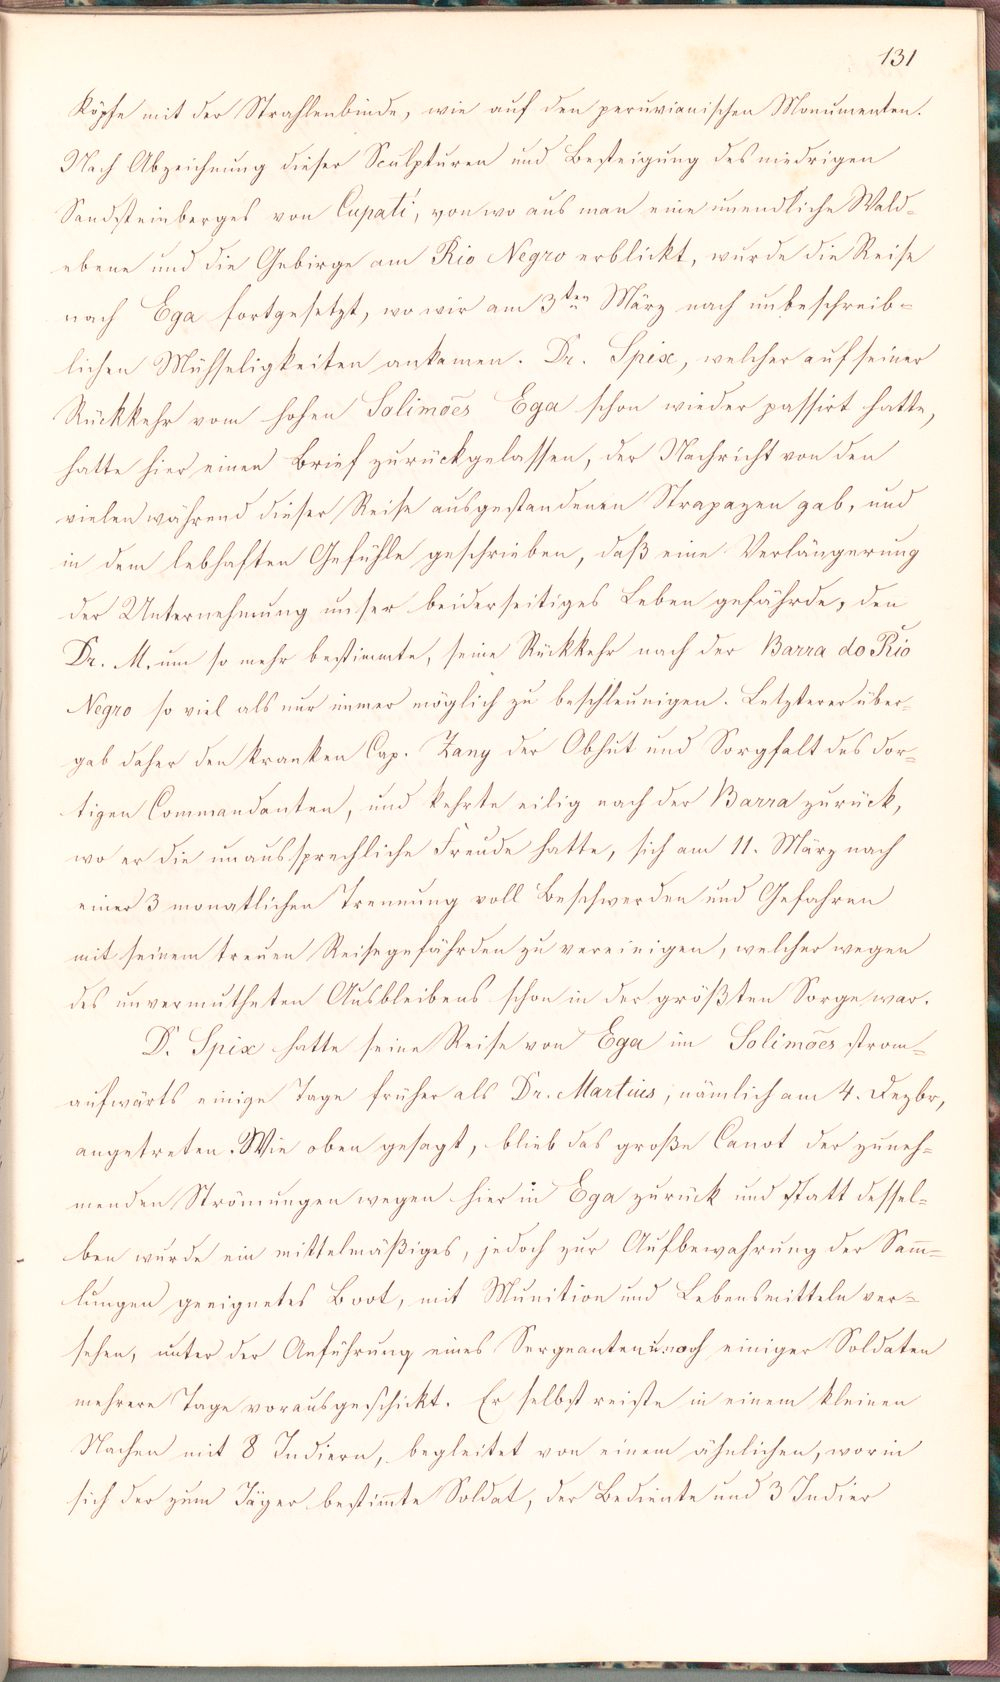 131
Köpfe mit der Strahlenbinde, wie auf den peruvianischen Monumenten.
Nach Abzeichnung dieser Sculpturen und Besteigung des niedrigen
Sandsteinberges von Cupatí, von wo aus man eine unendliche Wald-
ebene und die Gebirge am Rio Negro erblickt, wurde die Reise
nach Ega fortgesetzt, wo wir am 3ten März nach unbeschreib-
lichen Mühseligkeiten ankamen. Dr. Spix, welcher auf seiner
Rückkehr vom hohen Solimoẽs Ega schon wieder passirt hatte,
hatte hier einen Brief zurückgelassen, der Nachricht von den
vielen während dieser Reise ausgestandenen Strapazen gab, und
in dem lebhaften Gefühle geschrieben, daß eine Verlängerung
der Unternehmung unser beiderseitiges Leben gefährde, den
Dr. M. um so mehr bestimmte, seine Rückkehr nach der Barra do Rio
Negro so viel als nur immer möglich zu beschleunigen. Letzterer über-
gab daher den kranken Cap. Zany der Obhut und Sorgfalt des dor-
tigen Commandanten, und kehrte eilig nach der Barra zurück,
wo er die unaussprechliche Freude hatte, sich am 11. März nach
einer 3 monatlichen Trennung voll Beschwerden und Gefahren
mit seinem treuen Reisegefährden zu vereinigen, welcher wegen
des unvermutheten Ausbleibens schon in der größten Sorge war.
D. Spix hatte seine Reise von Ega im Solimoẽs strom-
aufwärts einige Tage früher als Dr. Martius, nämlich am 4. Dezbr,
angetreten. Wie oben gesagt, blieb das große Canot der zuneh-
menden Strömungen wegen hier in Ega zurück und statt dessel-
ben wurde ein mittelmäßiges, jedoch zur Aufbewahrung der Sam̅-
lungen geeignetes Boot, mit Munition und Lebensmitteln ver-
sehen, unter der Anführung eines Sergeanten u. noch einiger Soldaten
mehrere Tage vorausgeschickt. Er selbst reiste in einem kleinen
Nachen mit 8 Indiern, begleitet von einem ähnlichen, worin
sich der zum Jäger bestim̅te Soldat, der Bediente und 3 Indier